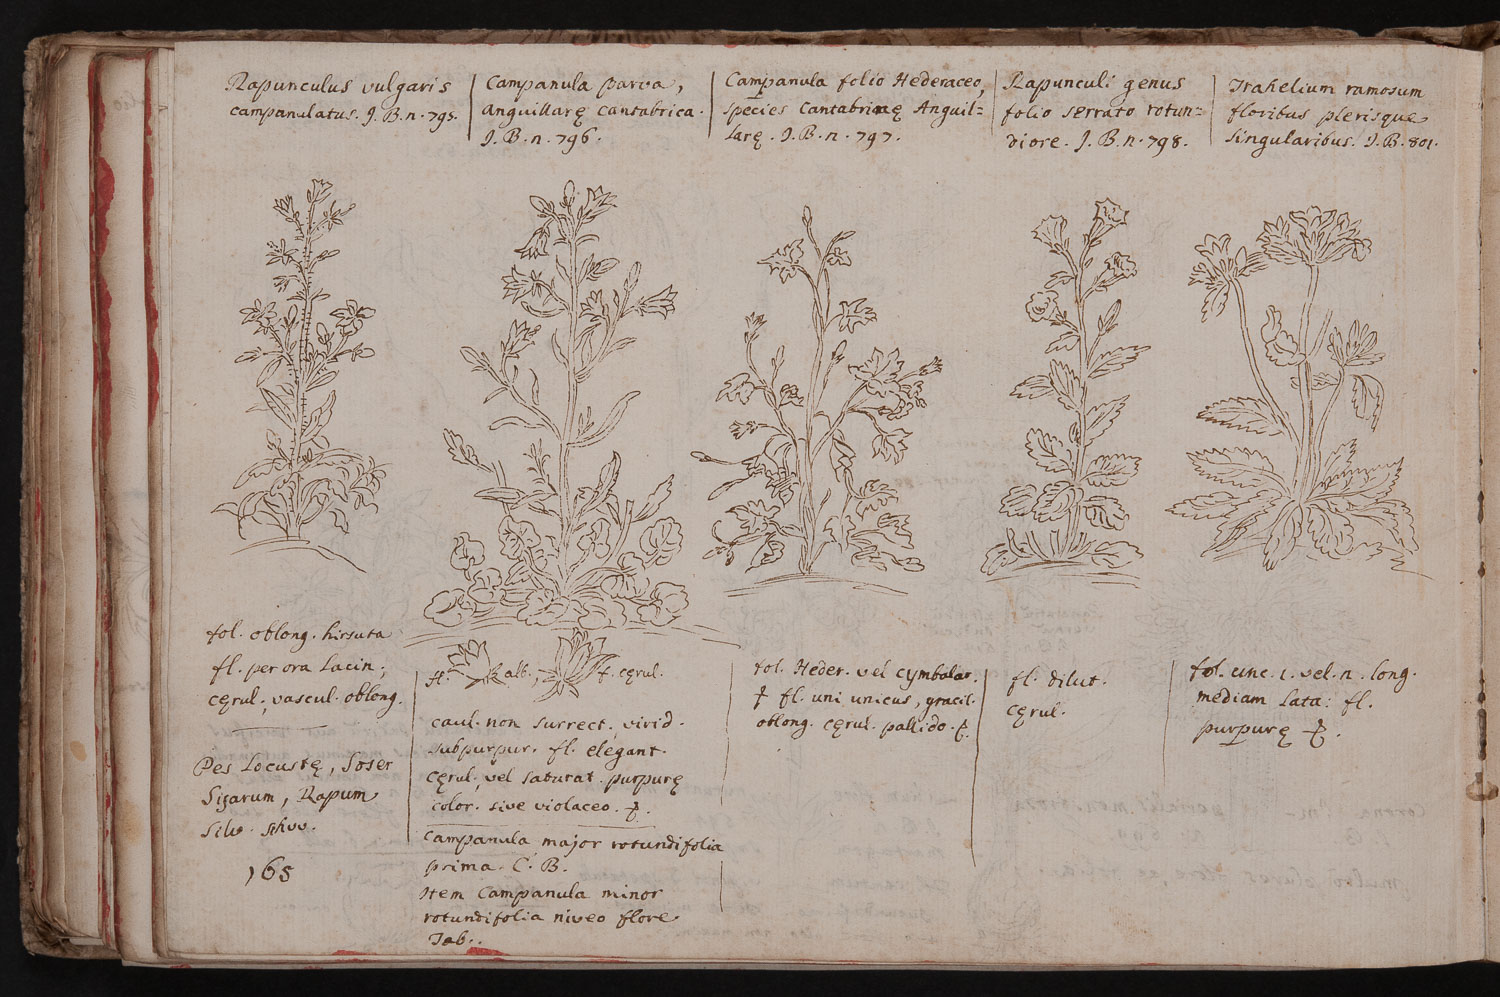 Rapunculus vulgaris
campanulatus. J. B. n. 795.
Campanula parva,
Anguillarę Cantabrica.
J. B. n. 796.
Campanula folio Hederaceo,
species Cantabricę Anguil=
larę. J. B. n. 797.
Rapunculi genus
folio serrato rotun=
diore. J. B. n. 798.
Trahelium ramosum
floribus plerisque
singularibus. J. B. 801.
fol. oblong. hirsuta
fl. per ora lacin;
cęrul., vascul. oblong.
Pes Locustę, Soser
Sisarum, Rapum
Silv.
165
fl. alb., f. cęrul.
caul. non surrect., virid.
subpurpur. fl. elegant.
cęrul., vel saturat. purpurę
color. sive violaceo.
Campanula major rotundifolia
prima. C. B.
Item Campanula minor
rotundifolia niveo flore
Tab.
fol. Heder. vel cymbalar.
fl. uni unicus, gracil.
oblong. cęrul. pallido.
fl. dilut.
cęrul.
fol. unc. 1. vel. n. long.
mediam lata: fl.
purpurę